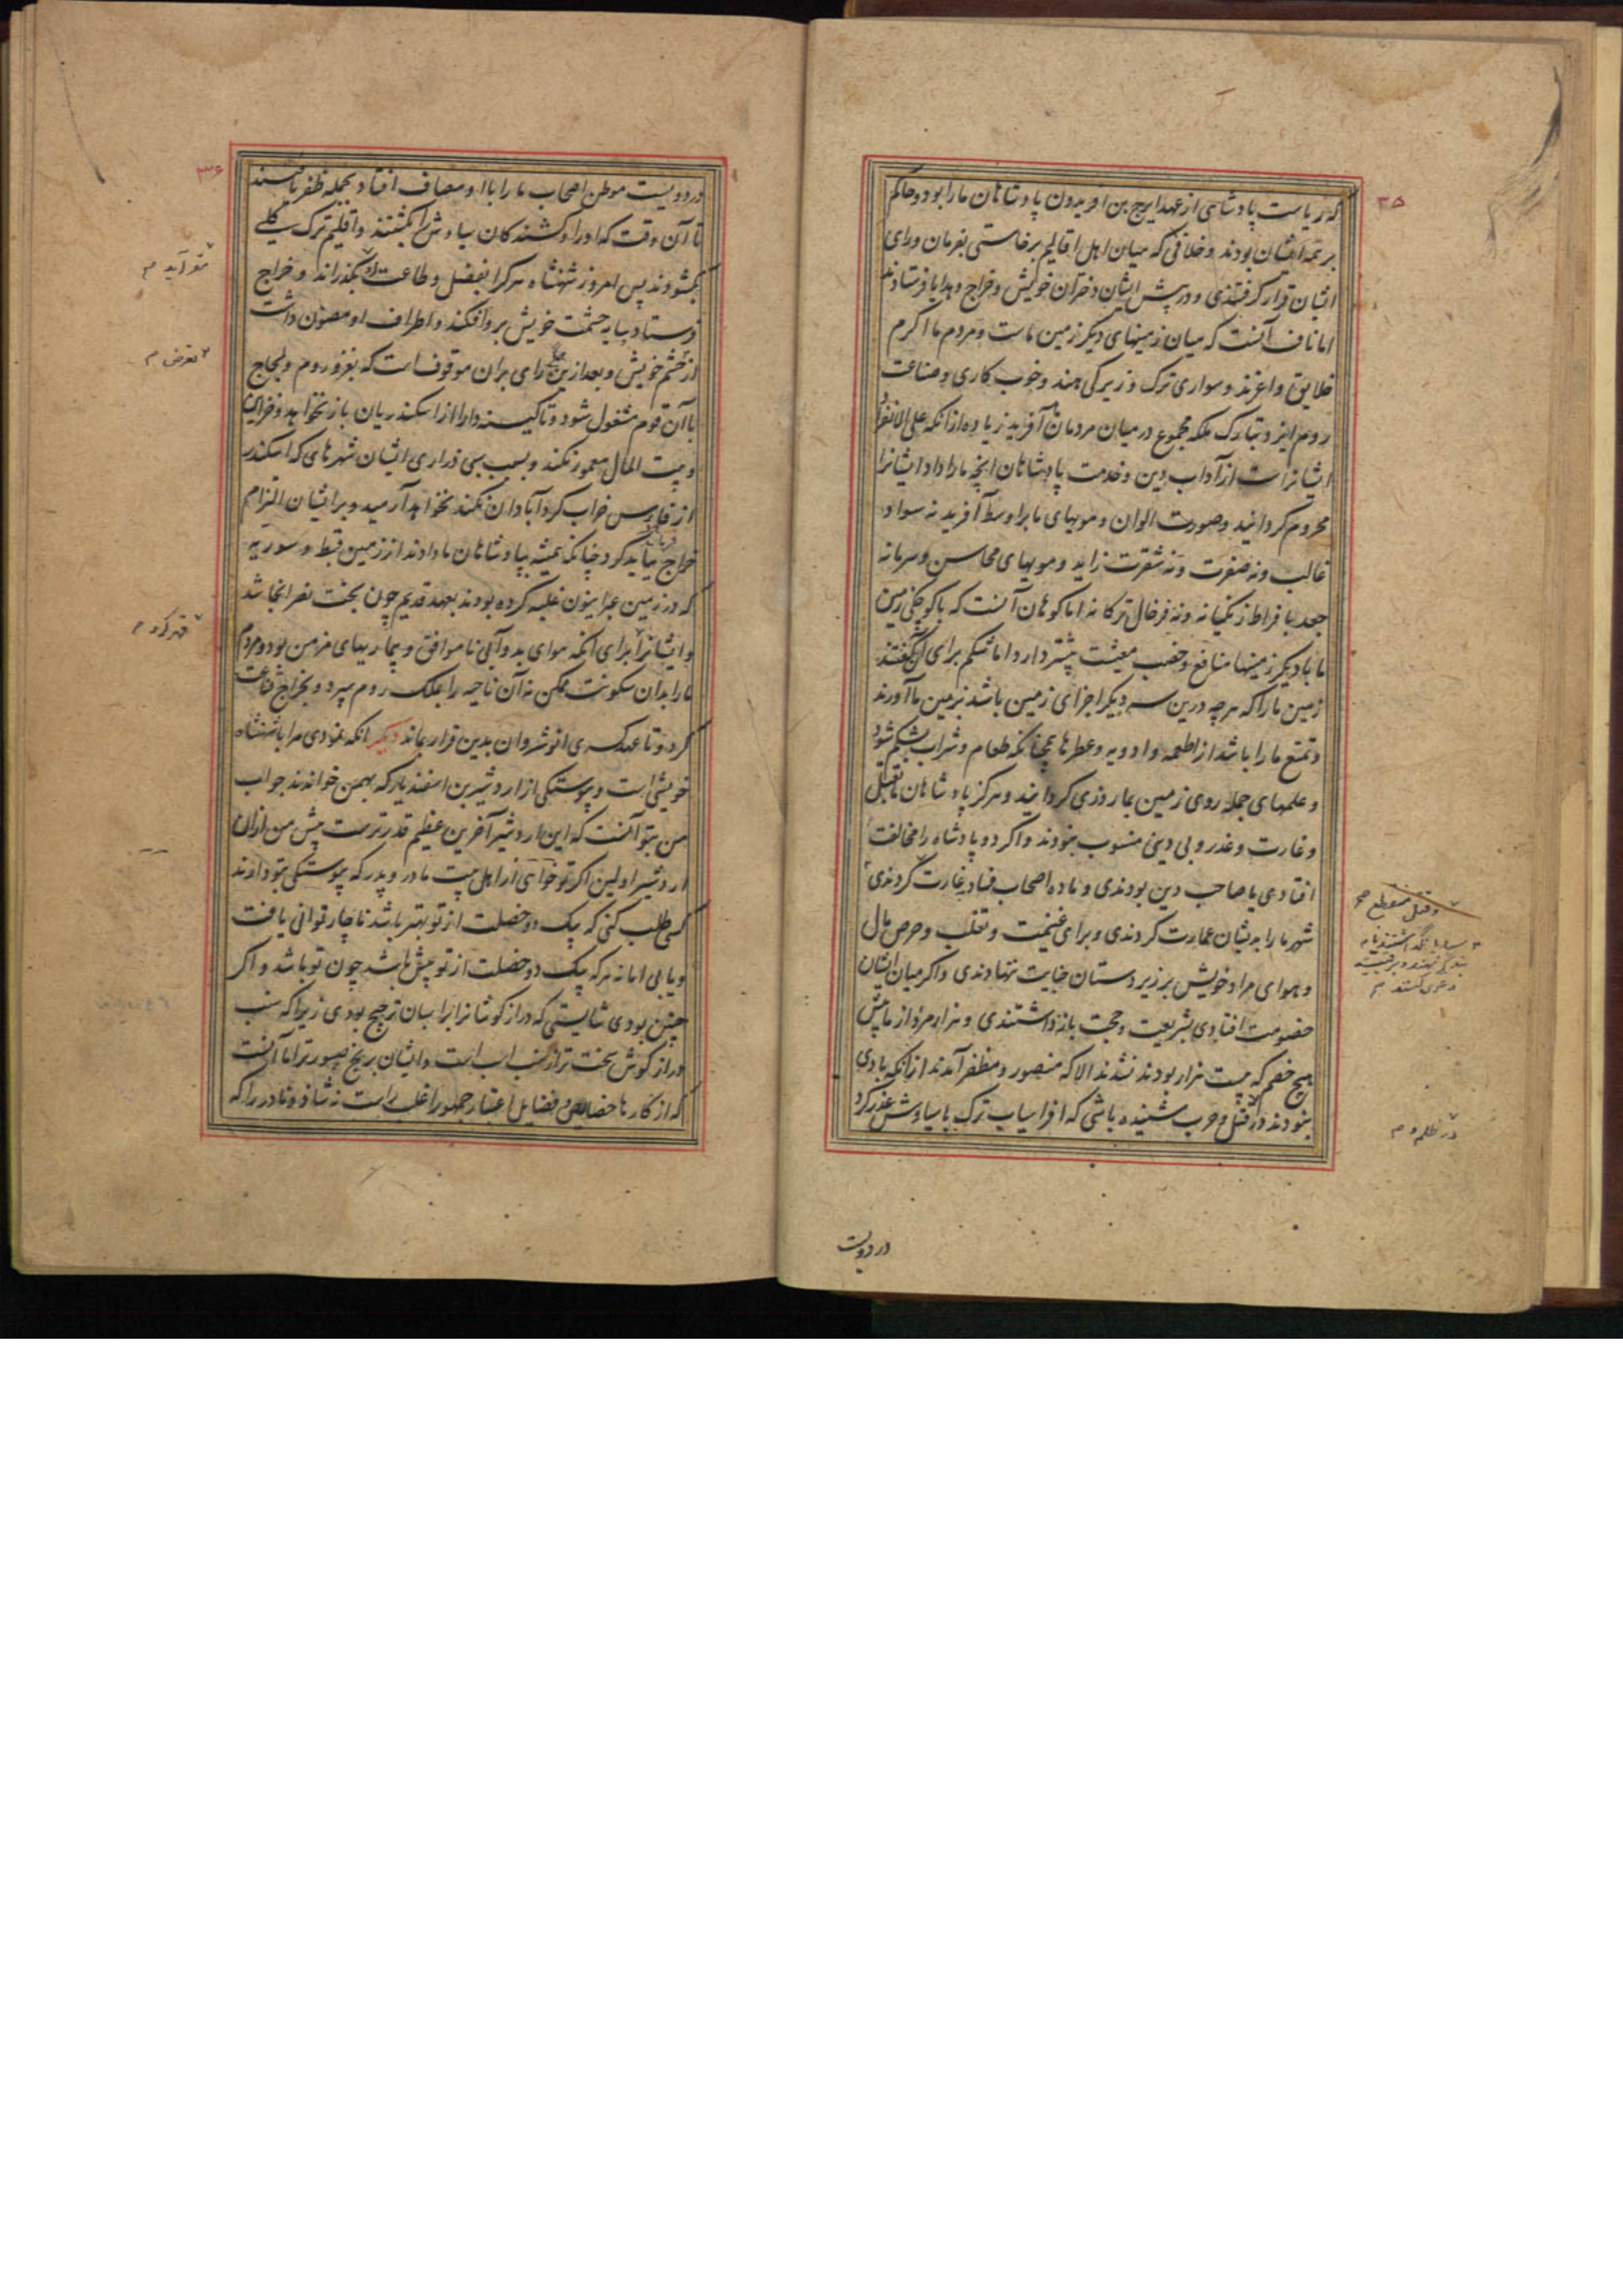 ۳۵
که ریاست پادشاهی از عهد ایرج بن افریدون پادشاهان ما را بود و حاکم
بر همه ایشان بودند و خلافی که میان اهل اقالیم برخاستی بفرمان و رای
ایشان قرار گرفتندی و در پیش ایشان دختران خویش و خراج و هدایا فرستادند
اما ناف آنست که میان زمینهای دیگر زمین ماست و مردم ما اکرم
خلایق و اعزند و سواری ترک و زیرکی هند و خوب کاری و صناعت
روم ایزد تبارک ملکه مجموع در میان مردمان ما آفرید زیاده از آنکه علی الانفراد
ایشانراست از آداب دین و خدمت پادشاهان انچه ما را داد ایشانرا
محروم گردانید و صورت الوان و مویهای ما بر اوسط آفرید نه سواد
غالب و نه صفرت و نه شقرت زاید و مویهای محاسن و سر ما نه
جعد بافراط زنگیانه و نه فرخال ترکانه اما کوهان آنست که با کوچکی زمین
ما با دیگر زمینها منافع و خصب معیشت بیشتر دارد اما شکم برای آن گفتند
زمین ما را که هر چه درین سه دیگر اجزای زمین باشد بزمین ما آورند
و تمتع ما را باشد از اطعمه و ادویه و عطرها همچنانکه طعام و شراب بشکم شود
و علمهای جمله روی زمین بما روزی گردانید و هرگز پادشاهان ما بقتل
و غارت و غدر و بی دینی منسوب نبودند و اگر دو پادشاه را مخالفت
افتادی یا صاحب دین بودندی و ماده اصحاب فساد بغارت کردندی
شهر ما را به نشان عمارت کردندی و برای غنیمت و تغلب و حرص مال
و هوای مراد خویش بر زیردستان جنایت ننهادندی و اگر میان ایشان
خصومت افتادی بشریعت و حجت باز داشتندی و هزار مرد از ما پیش
هیچ خصم که بیست هزار بودند نشدند الا که منصور و مظفر آمدند از آنکه بادی
نبودند در قتل و حرب شنیده باشی که افراسیاب ترک با سیاوش غدر کرد
و قتل منقطع
در ظلم و م
در دویست
۳۶
در دویست موطن اصحاب ما را با او مصاف افتاد بجمله ظفر یافتند
تا آن وقت که او را و کشندگان سیاوش را بکشتند و اقلیم ترک بکلی
بگشودند پس امروز شهنشاه هر کرا بفضل و طاعت او بگذراند و خراج
فرستاد سایه حشمت خویش برو افکند و اطراف او مصون داشت
از خشم خویش و بعد ازین همگی رای بران موقوف است که بغزو روم و لجاج
با آن قوم مشغول شود و تا کینه دارا از اسکندریان باز نخواهد و خزاین
و بیت المال معمور نکند و بسبب سبی ذراری ایشان شهرهای که اسکندر
از فارس خراب کرد آبادان نکند نخواهد آرمید و بر ایشان التزام
خراج بیاید کرد چنانکه همیشه بپادشاهان ما دادند از زمین قبط و سوریه
که در زمین عبرانیون غلبه کرده بودند بعهد قدیم چون بخت نصر انجا شد
و ایشانرا برای آنکه هوای بد و آبی ناموافق و بیماریهای مزمن بود و مردم
ما را بدان سکونت ممکن نه آن ناحیه را بملک روم سپرد و بخراج قناعت
کرد و تا عهد کسری انوشروان بدین قرار بماند دیگر آنکه نمودی مرا با شهنشاه
خویشی است و پیوستگی از اردشیر بن اسفندیار که بهمن خواندند جواب
من بتو آنست که این اردشیر آخرین عظیم قدرترست پیش من ازان
اردشیر اولین اگر تو خواهی از اهل بیت مادر و پدر که پیوستگی بتو دارند
کسی طلب کنی که بیک دو خصلت از تو بهتر باشد ناچار توانی یافت
و یابی اما نه هر که بیک دو خصلت از تو بیش باشد چون تو باشد و اگر
چنین بودی شایستی که دراز گوشانرا بر اسبان ترجیح بودی زیرا که سنب
دراز گوش سخت تر از سنب اسب است و ایشان برنج صبورتر اما آنست
که از کارها خصایص و فضایل اعتبار جمهور اغلب راست نه شاذ و نادر را که
تعرض م
قهر کرد م